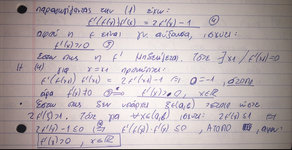 παραγωγίζοντας την (1) έχω:
f'(f(x))f'(x) = 2f'(x) - 1 ②
αφού η f είναι γν. αύξουσα, ισχύει:
f'(x) ≥ 0
Έστω πως η f' μηδενίζεται. Τότε ∃ x₁ / f'(x₁)=0
για x = x₁ προκύπτει:
f'(f(x₁)) f'(x₁) = 2f'(x₁) - 1 ⇔ 0 = -1, άτοπο
άρα f'(x) ≠ 0 f'(x) > 0, x∈ℝ
Έστω πως δεν υπάρχει ξ∈(α,β) τέτοιο ώστε
2f'(ξ) > 1, τότε για ∀x∈(α,β) ισχύει: 2f'(x) ≤ 1 ⇔
2f'(x) - 1 ≤ 0 ⇔ f'(f(x))·f'(x) ≤ 0, ΑΤΟΠΟ
f'(x) > 0, x∈ℝ